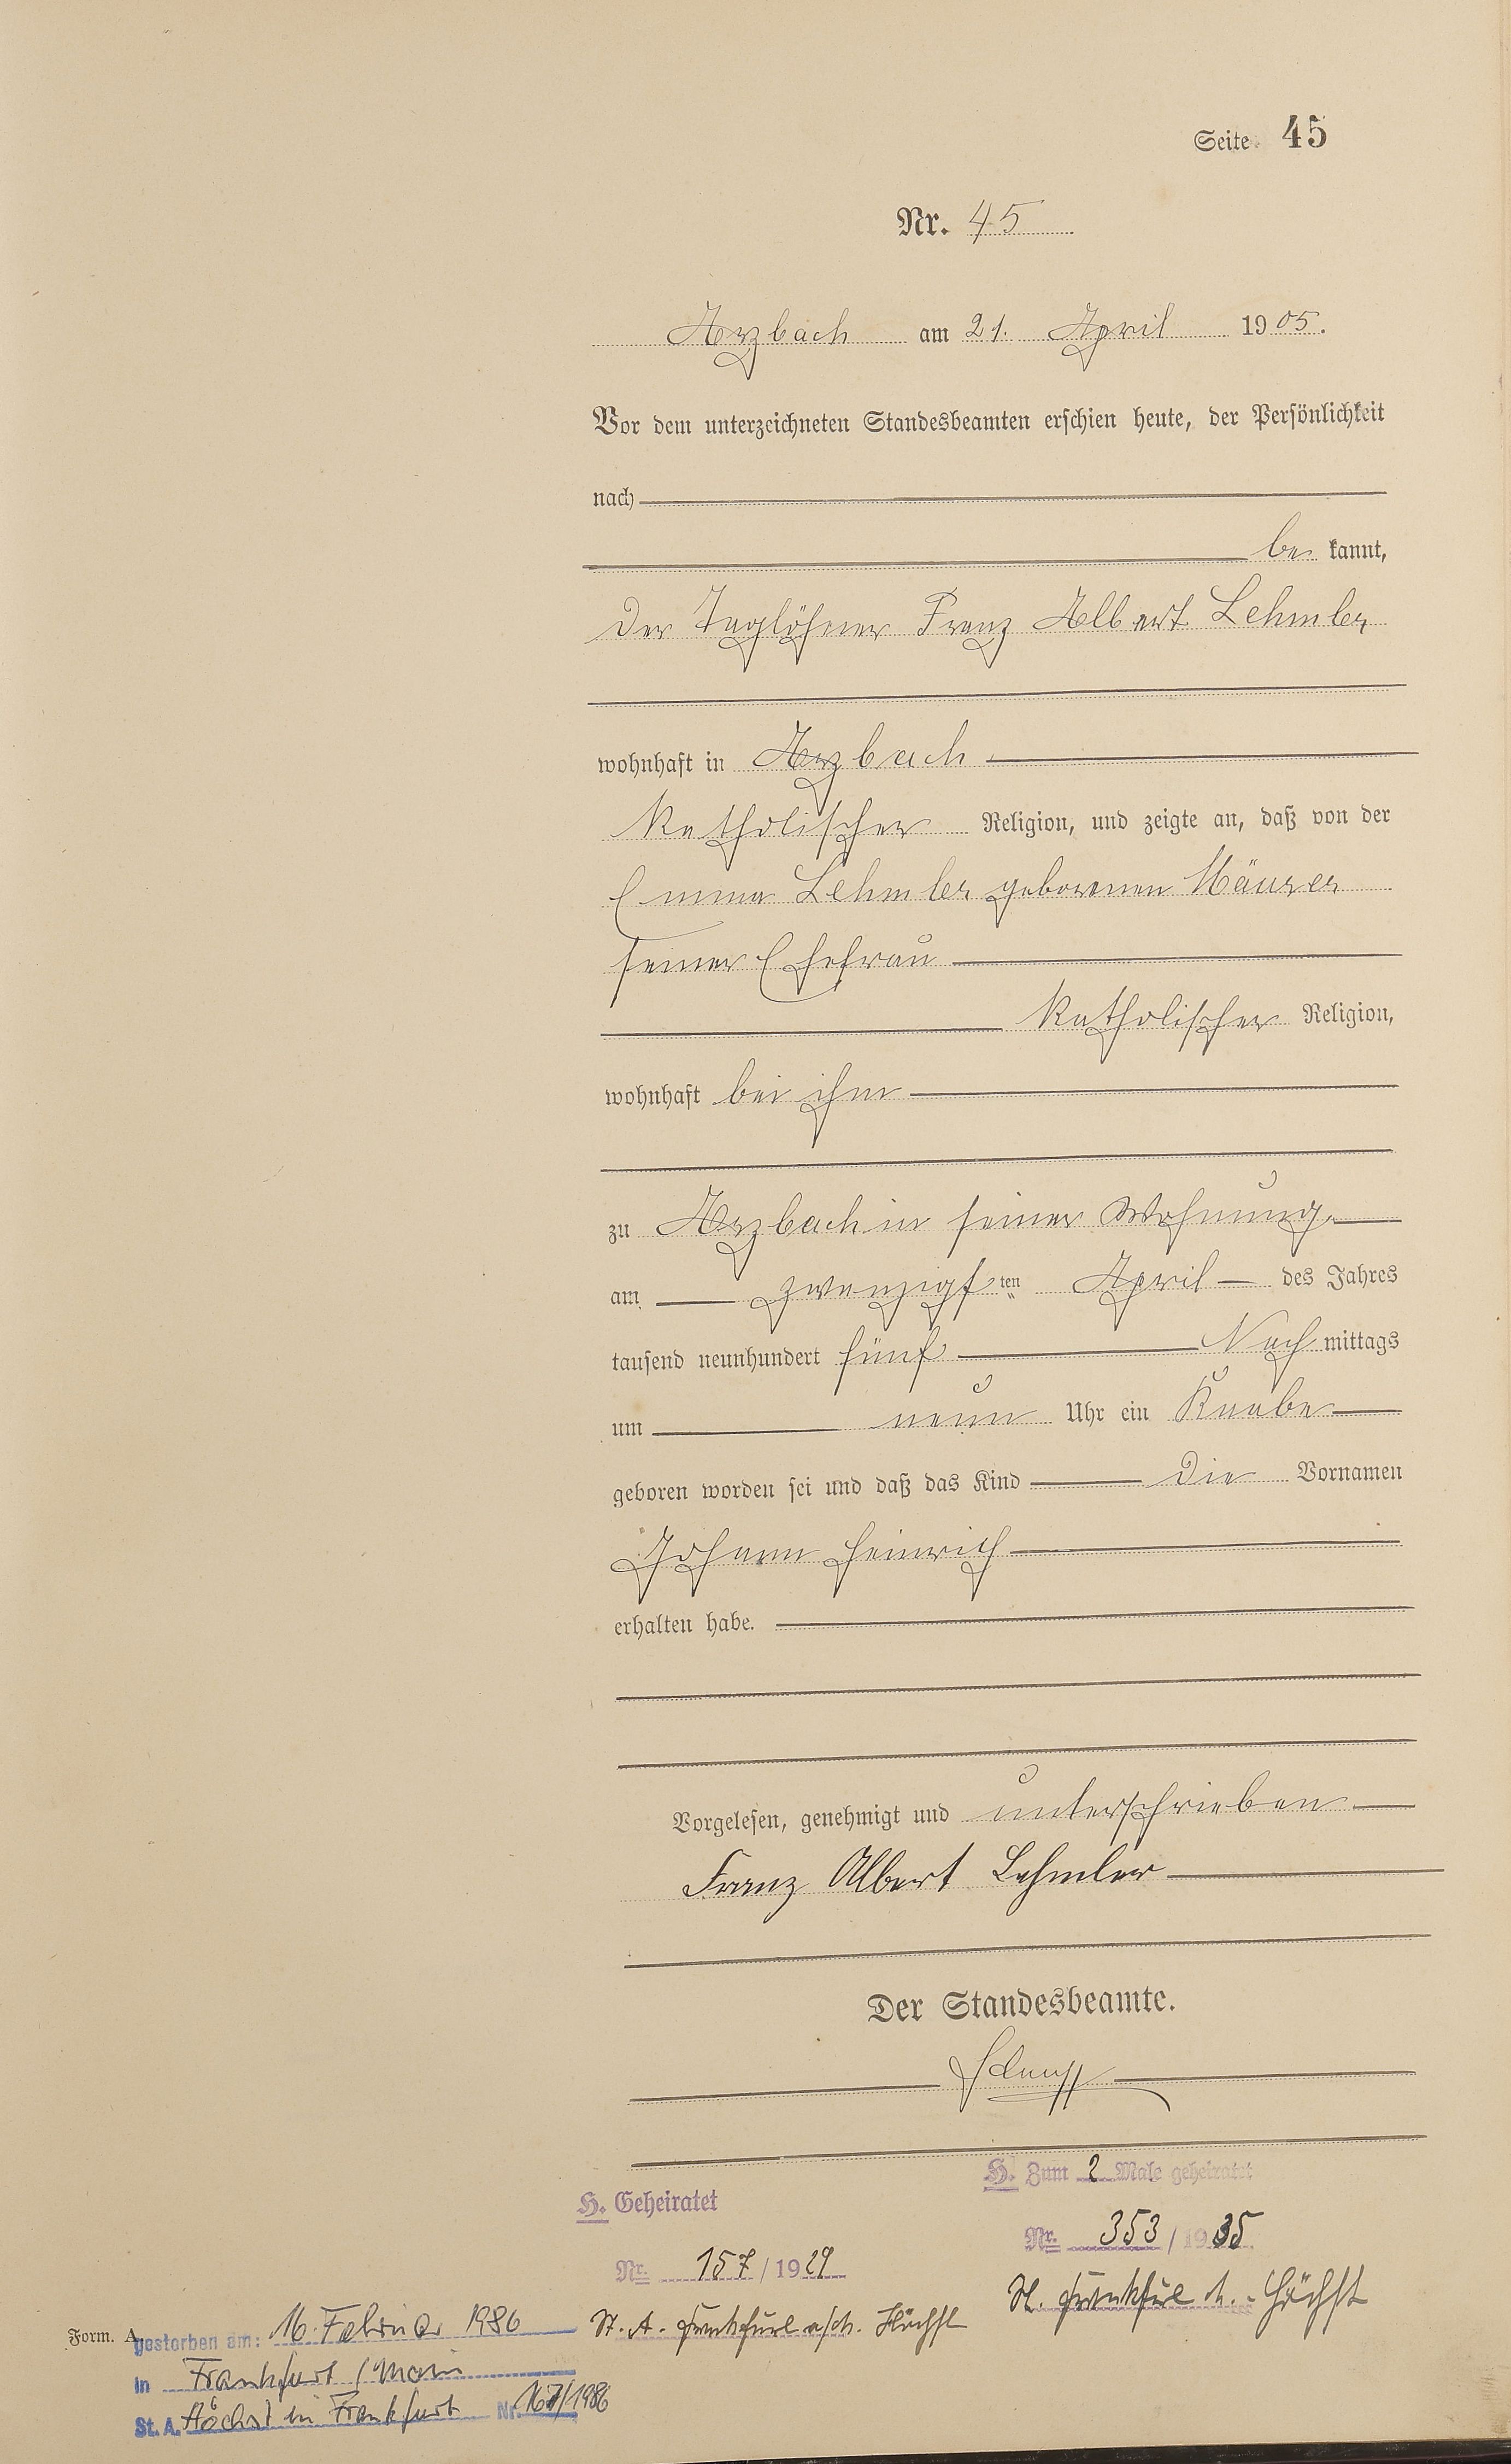 Seite 45
Nr. 45
Arzbach am 21. April 1905.
Vor dem unterzeichneten Standesbeamten erschien heute, der Persönlichkeit
nach
be kannt,
Der Taglöhner Franz Albert Lehmler
wohnhaft in Arzbach
Katholischer Religion, und zeigte an, daß von der
Emma Lehmler geborenen Mäurer
seiner Ehefrau
Katholischer Religion,
wohnhaft bei ihm
zu Arzbach in seiner Wohnung,
am zwanzigsten April des Jahres
tausend neunhundert fünf Nachmittags
um neun Uhr ein Knabe
geboren worden sei und daß das Kind die Vornamen
Johann Heinrich
erhalten habe.
Vorgelesen, genehmigt und unterschrieben
Franz Albert Lehmler
Der Standesbeamte.
H. Geheiratet
Nr. 157/1929
St. A. Frankfurt a/M. Höchst
H. Zum 2 Male geheiratet
Nr. 353/1935
St. Frankfurt M. - Höchst
Form. A.
gestorben am: 16. Februar 1986
in Frankfurt / Main
St. A. Höchst in Frankfurt Nr. 167/1986